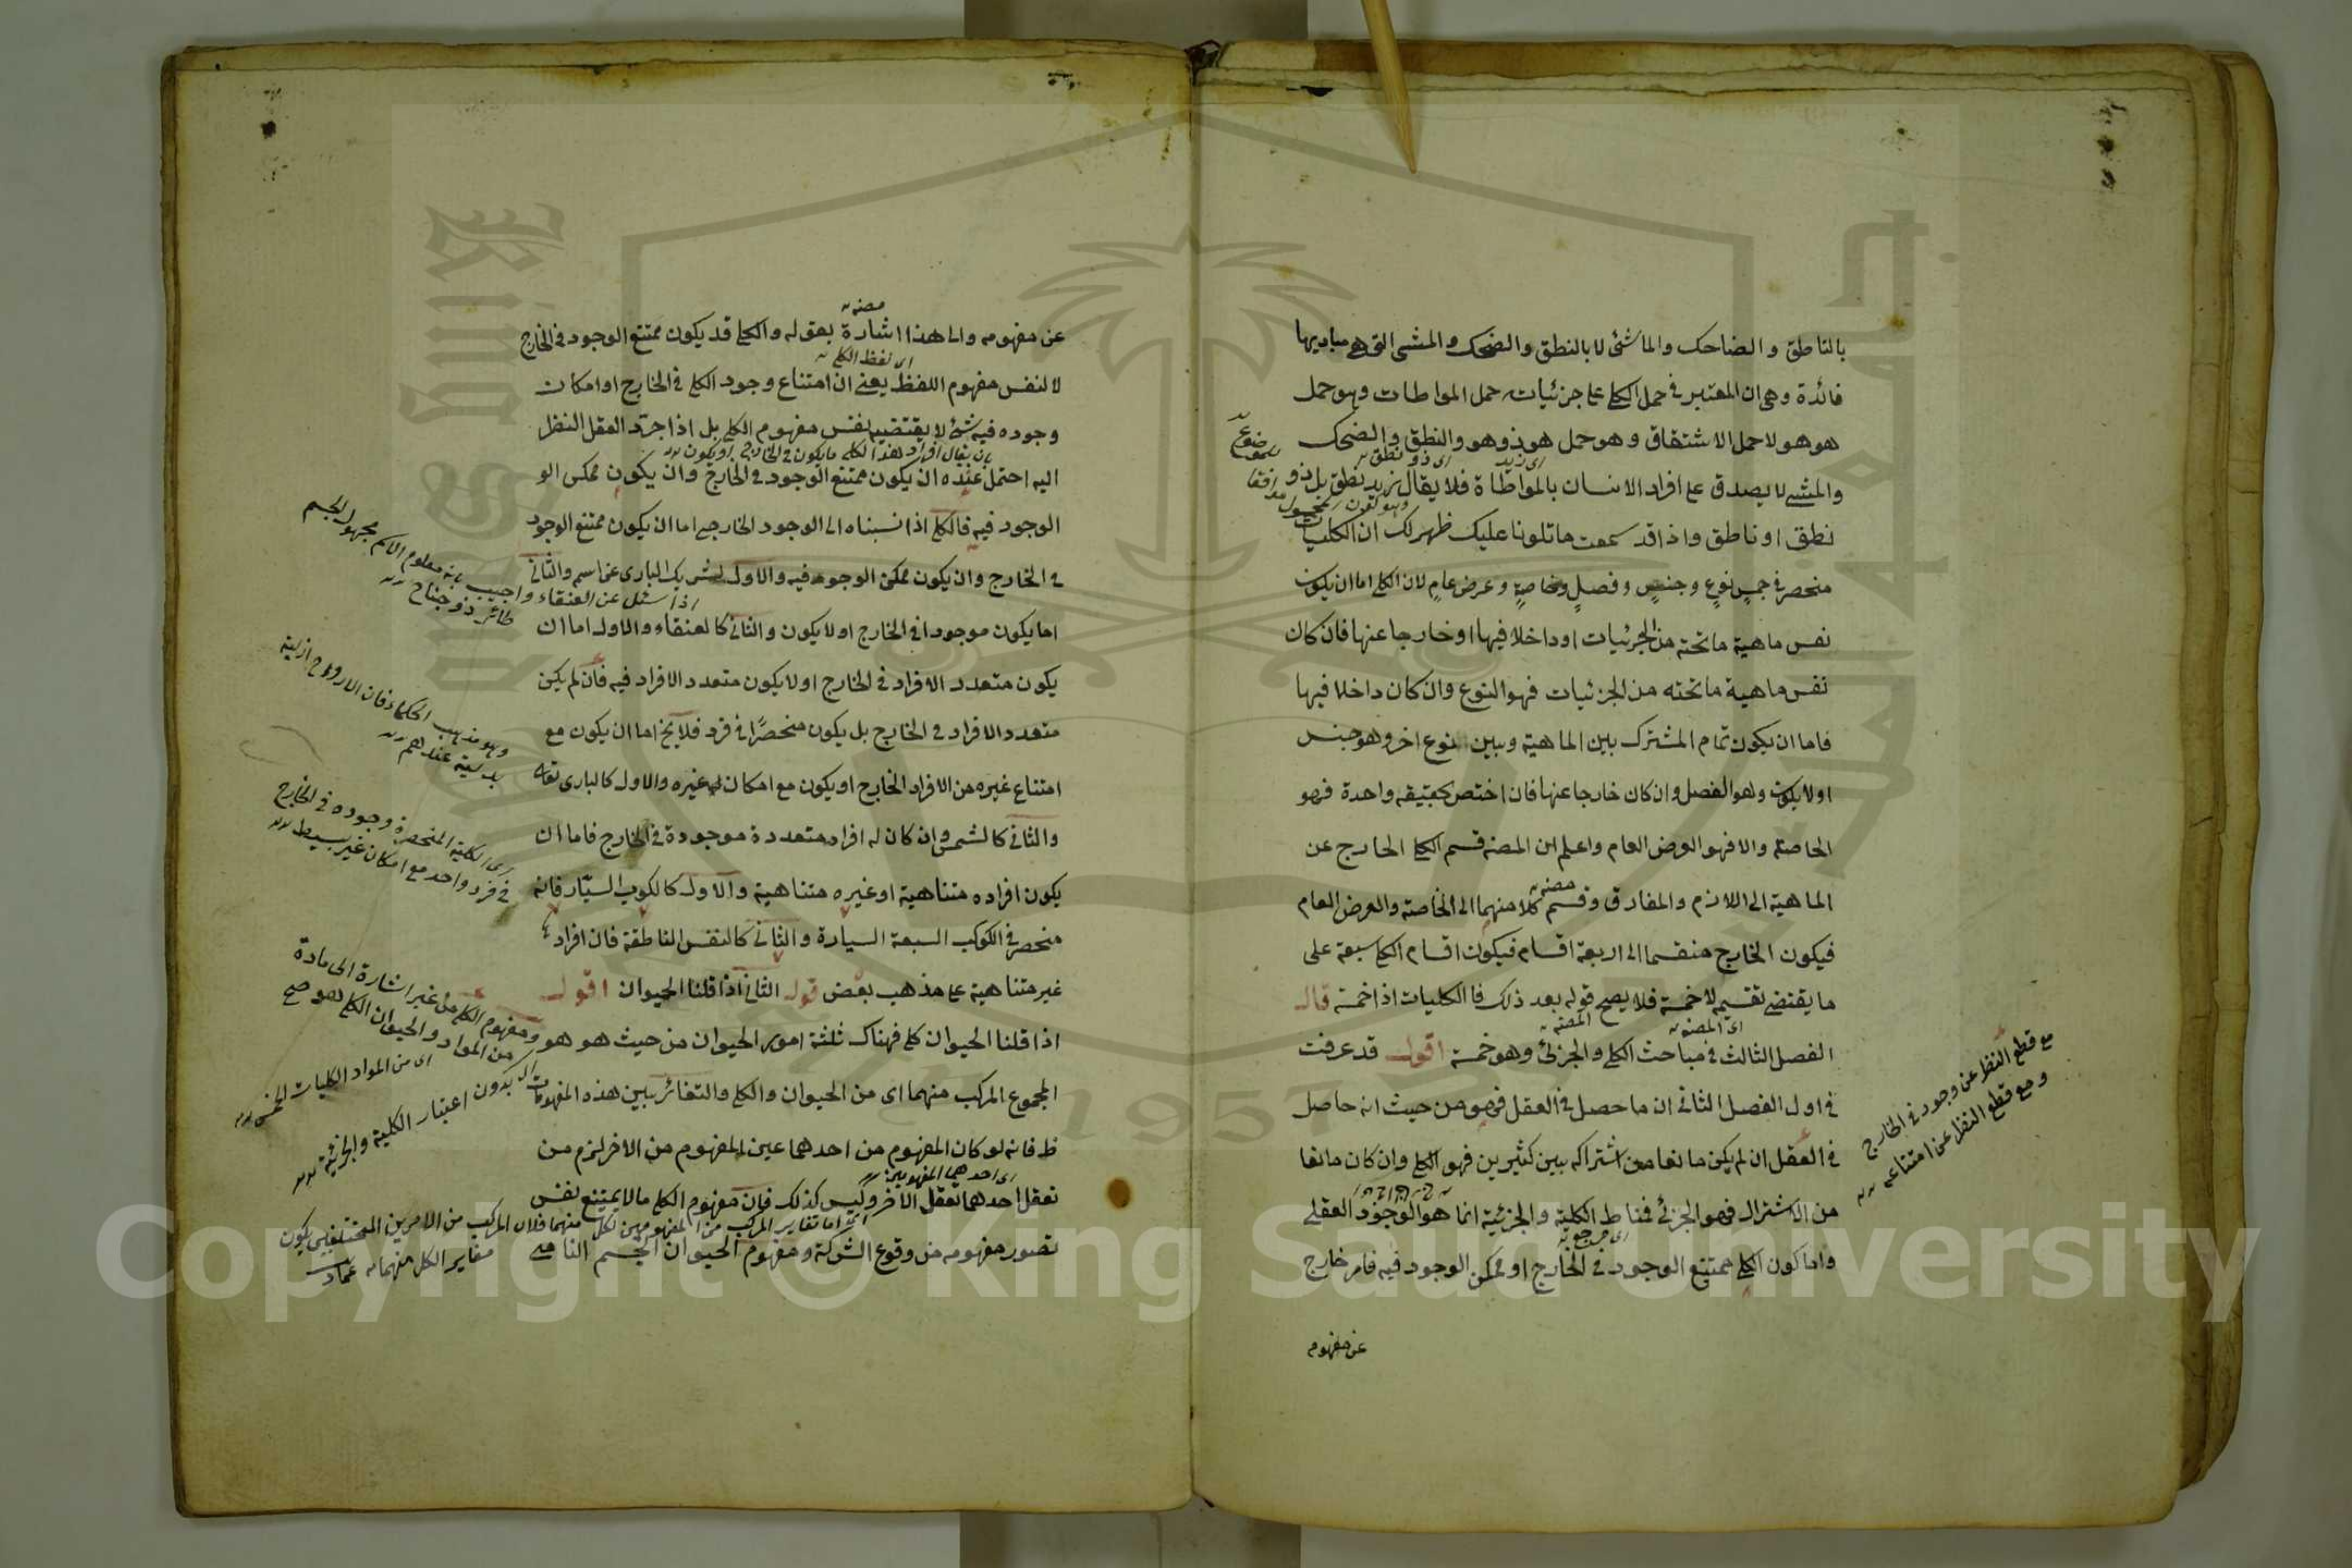 بالناطق والضاحك والماشئ لا بالنطق والضحك والمشى التى هى مباديها
فائدة وهى ان المعتبر فى حمل الكلى على جزئياته حمل المواطات وهو حمل
هو هو لا حمل الاشتقاق وهو حمل هو ذو هو والنطق والضحك
اى زيد
اى ذو نطق
والمشى لا يصدق على افراد الانسان بالمواطاة فلا يقال زيد نطق بل ذو
نطق او ناطق واذا قد سمعت ما تلونا عليك ظهر لك ان الكليات
منحصر فى خمس نوع وجنس وفصل وخاصة وعرض عام لان الكلى اما ان يكون
نفس ماهية ما تحته من الجزئيات او داخلا فيها او خارجا عنها فان كان
نفس ماهية ما تحته من الجزئيات فهو النوع وان كان داخلا فيها
فاما ان يكون تمام المشترك بين الماهية وبين نوع اخر وهو جنس
او لا يكون وهو الفصل وان كان خارجا عنها فان اختص بحقيقه واحدة فهو
الخاصة والا فهو العرض العام واعلم ان المصنه قسم الكلى الخارج عن
مصنه
الماهية الى اللازم والمفارق وقسم كلا منهما الى الخاصة والعرض العام
فيكون الخارج منقسما الى اربعة اقسام فيكون اقسام الكلى سبعة على
ما يقتضى تقسيمه لا خمسة فلا يصح قوله بعد ذلك فالكليات اذا خمسة قال
اى المصنه
المصنه
الفصل الثالث فى مباحث الكلى والجزئ وهو خمسة اقول قد عرفت
فى اول الفصل الثانى ان ما حصل فى العقل فهو من حيث انه حاصل
فى العقل ان لم يكن مانعا من اشتراكه بين كثيرين فهو الكلى وان كان مانعا
من الاشتراك فهو الجزئى فمناط الكلية والجزئية انما هو الوجود العقلى
واما كون الكلى ممتنع الوجود فى الخارج او ممكن الوجود فيه فامر خارج
عن مفهومه
مع قطع النظر عن وجود فى الخارج
ومع قطع النظر عن امتناعه
مصنه
عن مفهومه والى هذا اشارة بقوله والكلى قد يكون ممتنع الوجود فى الخارج
اى لفظ الكلى
لا لنفس مفهوم اللفظ يعنى ان امتناع وجود الكلى فى الخارج او امكان
وجوده فيه شئ لا يقتضيه نفس مفهوم الكلى بل اذا جرد العقل النظر
بان يقال افراد هذا الكلى ما يكون فى الخارج او يكون
اليه احتمل عنده ان يكون ممتنع الوجود فى الخارج وان يكون ممكن الو
الوجود فيه فالكلى اذا نسبناه الى الوجود الخارجى اما ان يكون ممتنع الوجود
فى الخارج وان يكون ممكن الوجود فيه والاول كشريك البارى عز اسمه والثانى
اما يكون موجودا فى الخارج او لا يكون والثانى كالعنقاء والاول اما ان
يكون متعدد الافراد فى الخارج او لا يكون متعدد الافراد فيه فان لم يكن
متعدد الافراد فى الخارج بل يكون منحصرًا فى فرد فلا يخ اما ان يكون مع
امتناع غيره من الافراد الخارج او يكون مع امكان غيره والاول كالبارى تعالى
والثانى كالشمس وان كان له افراد متعددة موجودة فى الخارج فاما ان
يكون افراده متناهية او غيره متناهية والاول كالكوب السيّار فانه
منحصر فى الكوكب السبعة السيارة والثانى كالنفس الناطقة فان افراد
غير متناهية على مذهب بعض قوله الثانى اذا قلنا الحيوان اقول
اذا قلنا الحيوان كلى فهناك ثلثة امور الحيوان من حيث هو هو ومفهوم الكلى من غير اشارة الى مادة
المجموع المركب منهما اى من الحيوان والكلى والتغائر بين هذه المفهومات
ظ فانه لو كان المفهوم من احدهما عين المفهوم من الاخر لزم من
اى احد هى المفهومين
تعقل احدهما تعقل الاخر وليس كذلك فان مفهوم الكلى ما لا يمتنع نفس
تصور مفهومه من وقوع الشركة ومفهوم الحيوان الجسم النامى
اذا سئل عن العنقاء واجيب بانه معلوم الاسم مجهول الجسم
طائر ذو جناح
وهو مذهب الحكماء فان الارواح ازلية
عندهم
اى الكلية المنحصرة وجوده فى الخارج
فى فرد واحد مع امكان غير بسيط
من المواد والحيوان الكلى هو
اى من المواد الكليات الخمس
بدون اعتبار الكلية والجزئية
اما تغاير المركب من المفهومين لكل منهما فلان المركب من الامرين المختلفين يكون
مغاير الكل منهما عماد